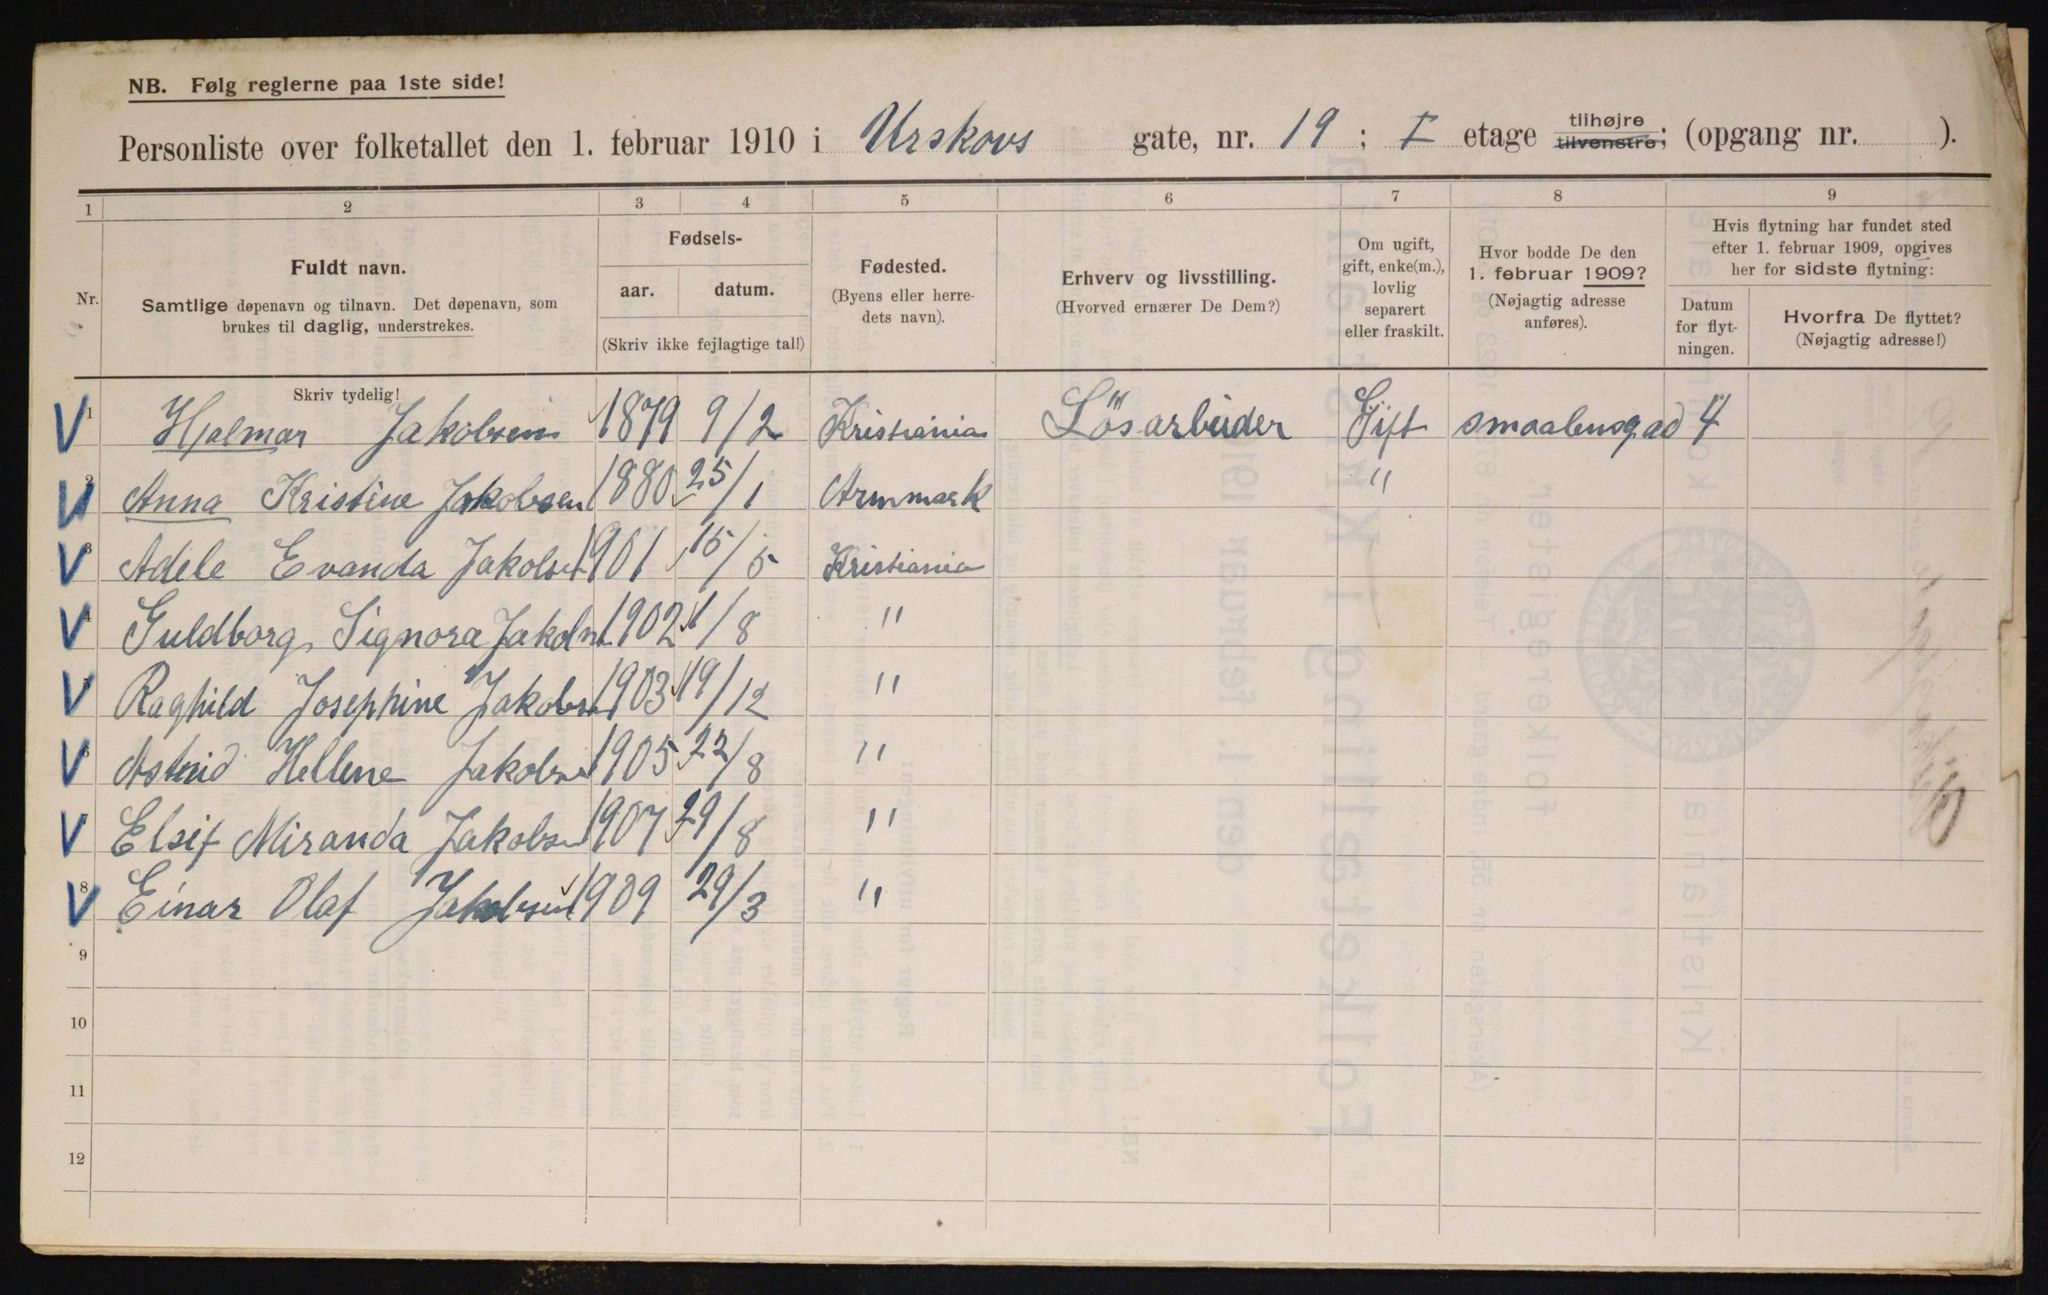 NB. Følg reglerne paa 1ste side!
Personliste over folketallet den 1. februar 1910 i Urskovs gate, nr. 19 ; I etage tilhøjre tilvenstre; (opgang nr. ).
1 2 3 4 5 6 7 8 9
Nr.
Fuldt navn.
Samtlige døpenavn og tilnavn. Det døpenavn, som
brukes til daglig, understrekes.
Fødsels-
aar. datum.
(Skriv ikke fejlagtige tal!)
Fødested.
(Byens eller herre-
dets navn).
Erhverv og livsstilling.
(Hvorved ernærer De Dem?)
Om ugift,
gift, enke(m.),
lovlig
separert
eller fraskilt.
Hvor bodde De den
1. februar 1909?
(Nøjagtig adresse
anføres).
Hvis flytning har fundet sted
efter 1. februar 1909, opgives
her for sidste flytning:
Datum
for flyt-
ningen.
Hvorfra De flyttet?
(Nøjagtig adresse!)
Skriv tydelig!
V 1 Hjalmar Jakobsen 1879 9/2 Kristiania Lösarbeider Gift smaalensgad 4
V 2 Anna Kristine Jakobsen 1880 25/1 Aremmark "
V 3 Adele Evanda Jakobsen 1901 15/5 Kristiania
V 4 Guldborg Signora Jakobsn 1902 1/8 "
V 5 Raghild Josephine Jakobsen 1903 19/12 "
V 6 Astrid Hellene Jakobsen 1905 22/8 "
V 7 Elsif Miranda Jakobsen 1907 29/8 "
V 8 Einar Olaf Jakobsen 1909 29/3 "
9
10
11
12